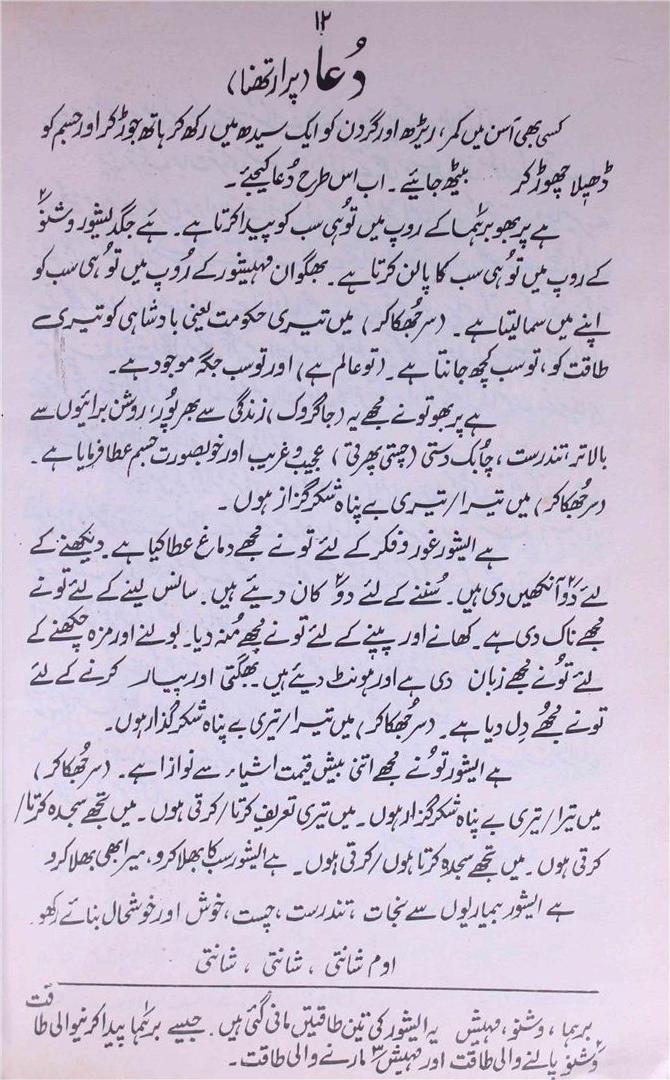 ۱۲
دُعا (پرارتھنا)
کسی بھی آسن میں کمر، ریڑھ اور گردن کو ایک سیدھ میں رکھ کر ہاتھ جوڑ کر اور جسم کو
ڈھیلا چھوڑ کر بیٹھ جائیے۔ اب اس طرح دُعا کیجئے۔
ہے پربھو برہما کے روپ میں تو ہی سب کو پیدا کرتا ہے۔ ہے جگدیشور وشنو۲
کے روپ میں تو ہی سب کا پالن کرتا ہے۔ بھگوان مہیشور کے رُوپ میں تو ہی سب کو
اپنے میں سما لیتا ہے۔ (سر جُھکا کر) میں تیری حکومت یعنی بادشاہی کو تیری
طاقت کو، تو سب کچھ جانتا ہے۔ (تو عالم ہے) اور تو سب جگہ موجود ہے۔
ہے پربھو تو نے مجھے یہ (جاگروک) زندگی سے بھرپُور، روشن برائیوں سے
بالاتر، تندرست، چابک دستی (چستی پھرتی) عجیب و غریب اور خوبصورت جسم عطا فرمایا ہے۔
(سر جُھکا کر) میں تیرا/تیری بے پناہ شکر گزار ہوں۔
ہے ایشور غور و فکر کے لئے تو نے مجھے دماغ عطا کیا ہے۔ دیکھنے کے
لئے دو۲ آنکھیں دی ہیں۔ سُننے کے لئے دو۲ کان دیئے ہیں۔ سانس لینے کے لئے تو نے
مجھے ناک دی ہے۔ کھانے اور پینے کے لئے تو نے مجھے مُنہ دیا۔ بولنے اور مزہ چکھنے کے
لئے تُو نے مجھے زبان دی ہے اور ہونٹ دیئے ہیں۔ بھگتی اور پیار کرنے کے لئے
تو نے مجھے دِل دیا ہے۔ (سر جُھکا کر) میں تیرا/تیری بے پناہ شکر گُذار ہوں۔
ہے ایشور تو نے مجھے اتنی بیش قیمت اشیاء سے نوازا ہے۔ (سر جُھکا کر)
میں تیرا/تیری بے پناہ شکر گزار ہوں۔ میں تیری تعریف کرتا/کرتی ہوں۔ میں تجھے سجدہ کرتا/
کرتی ہوں۔ میں تجھے سجدہ کرتا ہوں/کرتی ہوں۔ ہے ایشور سب کا بھلا کرو، میرا بھی بھلا کرو
ہے ایشور بیماریوں سے نجات، تندرست، چست، خوش اور خوشحال بنائے رکھو۔
اوم شانتی، شانتی، شانتی
برہما، وشنو، مہیش یہ ایشور کی تین طاقتیں مانی گئی ہیں۔ جیسے برہما پیدا کرنیوالی طاقت
۲ وشنو پالنے والی طاقت اور مہیش۳ مارنے والی طاقت۔